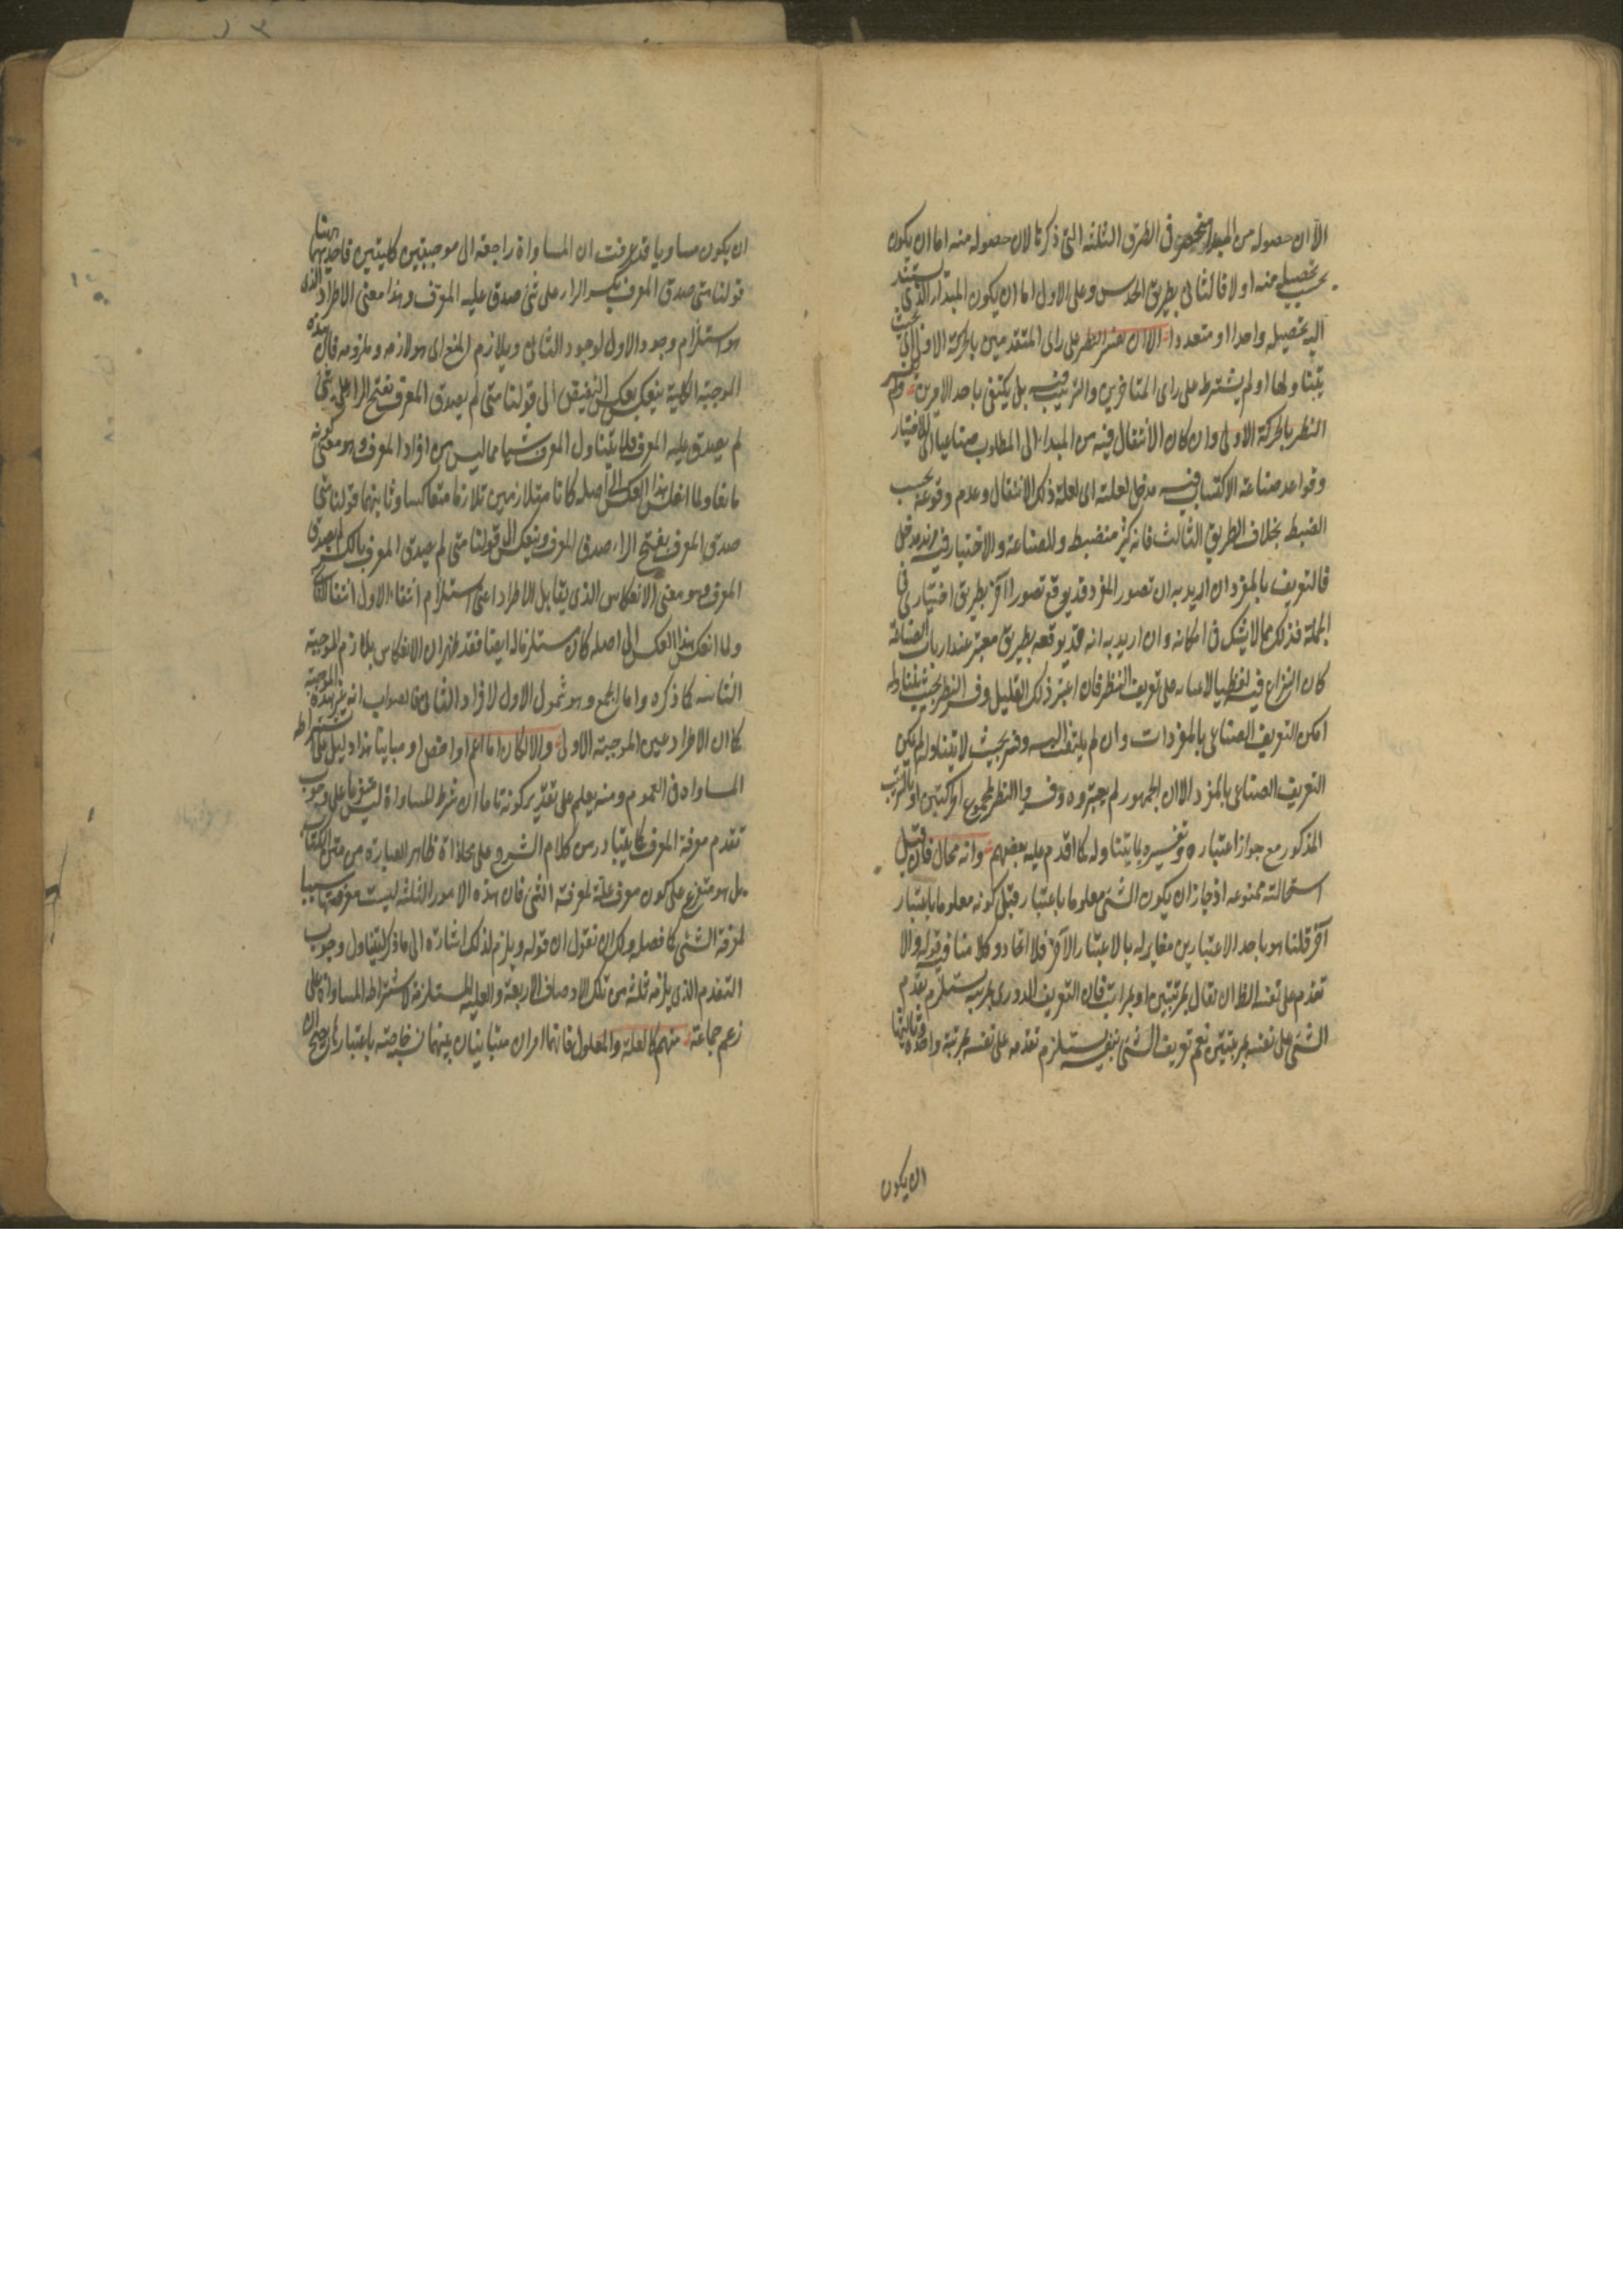 الا ان حصوله من المبدا منحصر فى الطرق الثلثه التى ذكرنا لان حصوله منه اما ان يكون
بحسب تحصيله منه اولا فالثانى بطريق الحدس وعلى الاول اما ان يكون المبدا الذى يستند
اليه تحصيله واحدا او متعددا الا ان يفسر النظر على راى المتقدمين بالحركة الاولى بحيث
يتناولها او لم يشترط على راى المتاخرين والترتيب فيه بل يكتفى باحد الامرين
النظر بالحركة الاولى وان كان الانتقال فيه من المبداء الى المطلوب صناعيا للاختيار
وقواعد صناعة الاكتساب فيه مدخل لعلته اى لعلة ذلك الانتقال وعدم وقوعه بحسب
الضبط بخلاف الطريق الثالث فانه كثير منضبط وللصناعة والاختيار فيه مزيد مدخل
فالتعريف بالمفرد ان اريد به ان تصور المفرد قد يوقع تصورا آخر بطريق اختيارى فى
الجملة فذلك مما لا يشك فى امكانه وان اريد به انه قد يوقعه بطريق معتبر عند ارباب الصناعة
كان النزاع فيه لفظيا على تعريف النظر فان اعتبر ذلك القليل وفسر النظر بحيث يتناوله
امكن التعريف الصناعى بالمفردات وان لم يلتفت اليه وفسر بحيث لا يتناوله لم يكن
التعريف الصناعى بالمفرد الا ان الجمهور لم يعتبروه وفسروا النظر بمجموع الحركتين او بالترتيب
المذكور مع جواز اعتباره وتفسيره بما يتناوله كما اقدم عليه بعضهم وانه محال فان قيل
استحالته ممنوعه اذ جاز ان يكون الشئ معلوما باعتبار قبل كونه معلوما باعتبار
آخر قلنا هو باحد الاعتبارين مغاير له بالاعتبار الآخر فلا اتحاد وكلامنا فيه قوله والا
تقدم على نفسه الظ ان يقال بمرتبتين او بمراتب فان التعريف الدورى بمرتبه يستلزم تقدم
الشئ على نفسه بمرتبتين نعم تعريف الشئ بنفسه يستلزم تقدمه على نفسه بمرتبة واحدة
ان يكون
ان يكون مساويا قد عرفت ان المساواة راجعة الى موجبتين كليتين فاحديهما ههنا
قولنا متى صدق المعرف بكسر الراء على شئ صدق عليه المعرف وهذا معنى الاطراد الذى
هو استلزام وجود الاول لوجود الثانى ويلازم المنع اى هو لازمه وملزومه فان هذه
الموجبة الكلية ينعكس بعكس النقيض الى قولنا متى لم يصدق المعرف بفتح الراء على شئ
لم يصدق عليه المعرف فلا يتناول المعرف شيئا مما ليس من افراد المعرف وهو معنى كونه
مانعا ولما انعكس هذا العكس الى اصله كانا متلازمين تلازما متعاكسا وثانيهما قولنا متى
صدق المعرف بفتح الراء صدق المعرف وينعكس الى قولنا متى لم يصدق المعرف بالكسر لم يصدق
المعرف وهو معنى الانعكاس الذى يقابل الاطراد اعنى استلزام انتفاء الاول انتفاء الثانى
ولما انعكس هذا العكس الى اصله كان مستلزما له ايضا فقد ظهر ان الانعكاس يلازم الموجبة
الثانيه كما ذكره واما الجمع وهو شمول الاول لافراد الثانى فالصواب انه عين هذه الموجبة
كما ان الاطراد عين الموجبة الاولى والا لكان اما اعم او اخص او مباينا هذا دليل على اشتراط
المساواه فى العموم ومنه يعلم على تقدير كونه تاما ان شرط المساواة ليس متفرعا على وجوب
تقدم معرفة المعرف كما يتبادر من كلام الشرح وعلى محاذاة ظاهر العبارة من متن الكتاب
بل هو متفرع على كون معرفته علة لمعرفة الشئ فان هذه الامور الثلثه ليست معرفتها سببا
لمعرفة الشئ كما فصله ولك ان تقول ان قوله ويلزم لذلك اشاره الى ما ذكر ليتناول وجوب
التقدم الذى يلزمه ثلثه من تلك الاوصاف الاربعة والعليه المستلزمة لاشتراط المساواة على
زعم جماعة منهم كالعلة والمعلول فانهما امران متباينان بينهما نسبة خاصة باعتبارها يصلح ان